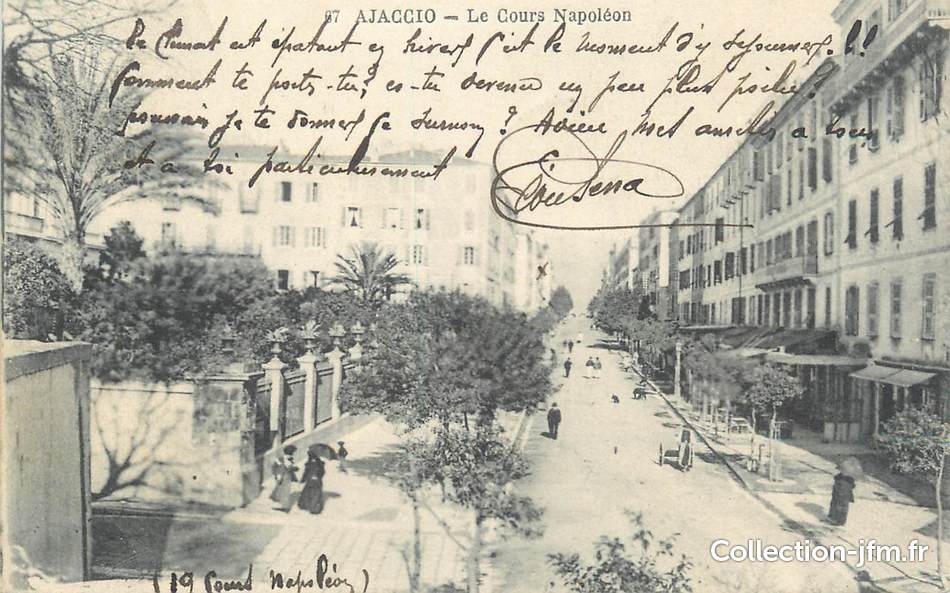 67 AJACCIO — Le Cours Napoléon
Le Climat est épatant en hiver c'est le moment d'y séjourner. !!
Comment te portes-tu? es-tu devenu un peu plus poilu?
pourrais je te donner ce surnom? Adieu mes amitiés à tous
et a toi particulièrement
(19 Cours Napoléon)
Collection-jfm.fr